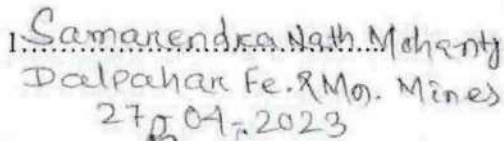 1. Samarendra Nath Mohanty
Dalpahar Fe. & Mn. Mines
27.04.2023